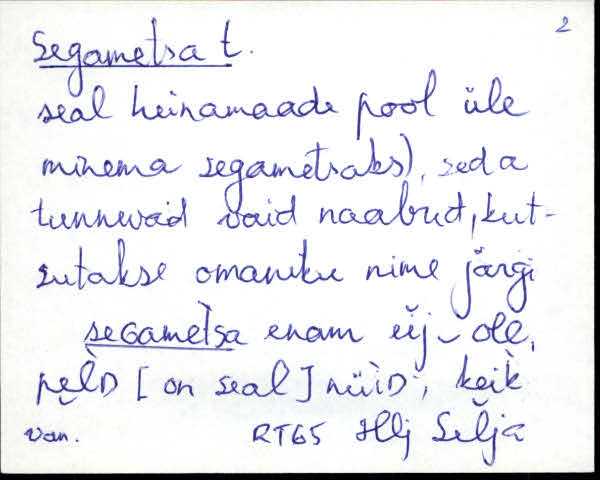 2
Segametsa t.
seal heinamaade pool üle
minema segametsaks), seda
tunnevad vaid naabrid, kut-
sutakse omaniku nime järgi
seGametsa enam ei̬j ole,
pèlD [on seal] nüìD, keik
van. RT65 Hlj Selja